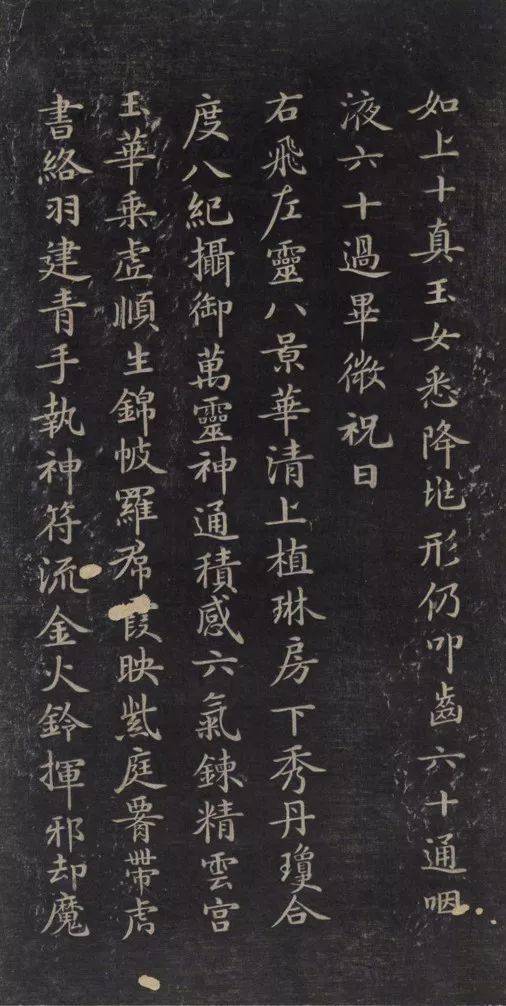 如上十真玉女悉降地形仍叩齒六十通咽
液六十過畢微祝曰
右飛左靈八景華清上植琳房下秀丹瓊合
度八紀攝御萬靈神通積感六氣鍊精雲宮
玉華乘虛順生錦帔羅帬霞映紫庭腎帶虎
書絡羽建青手執神符流金火鈴揮邪却魔